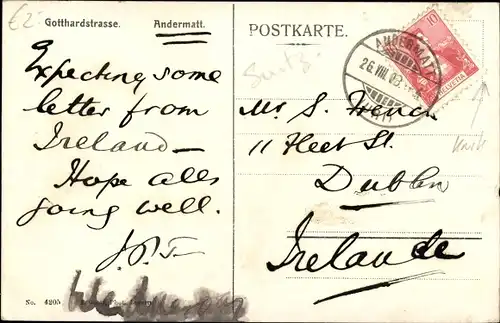 €2.
Gotthardstrasse. Andermatt.
Expecting some
letter from
Ireland—
Hope all
going well.
No. 4205
POSTKARTE.
ANDERMATT
26.VIII.09.
10
HELVETIA
Mr. S. French
11 Fleet St.
Dublin
Irelande